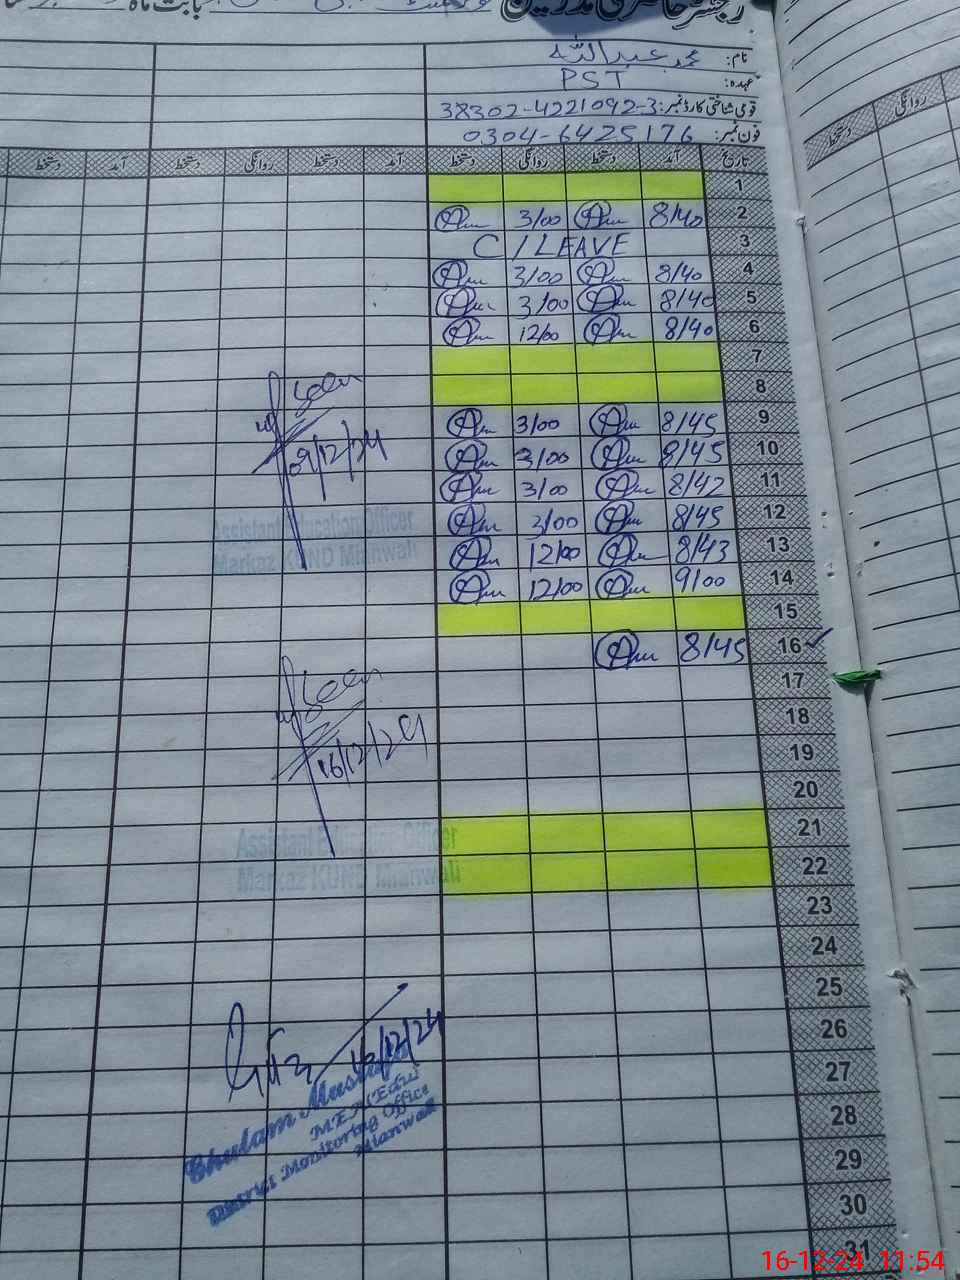 رجسٹر حاضری مدرسین
بابت ماہ
نام: محمد عبداللہ
عہدہ: PST
قومی شناختی کارڈ نمبر: 38302-4221092-3
فون نمبر: 0304-6425176
تاریخ آمد دستخط روانگی دستخط آمد دستخط روانگی دستخط آمد دستخط
روانگی دستخط
1
2 8/40 3/00
3 C/LEAVE
4 8/40 3/00
5 8/40 3/00
6 8/40 12/00
7
8
9 8/45 3/00
10 8/45 3/00
11 8/42 3/00
12 8/45 3/00
13 8/43 12/00
14 9/00 12/00
15
16 8/45
17
18
19
20
21
22
23
24
25
26
27
28
29
30
31
Seen
09/12/24
Assistant Education Officer
Markaz KUND Mianwali
Seen
16/12/24
Assistant Education Officer
Markaz KUND Mianwali
16/12/24
Ghulam Mustafa
M.E.A (Edu)
District Monitoring Office
Mianwali
16-12-24 11:54